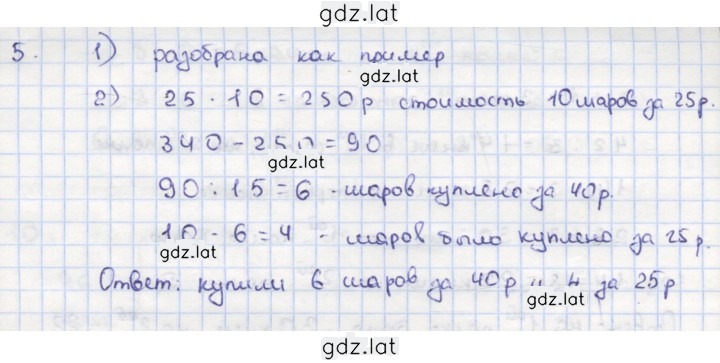 gdz.lat
5. 1) разобрана как пример
gdz.lat
2) 25 · 10 = 250 р стоимость 10 шаров за 25 р.
340 - 250 = 90
gdz.lat
90 : 15 = 6 - шаров куплено за 40 р.
10 - 6 = 4 - шаров было куплено за 25 р.
gdz.lat
Ответ: купили 6 шаров за 40 р и 4 за 25 р
gdz.lat
gdz.lat